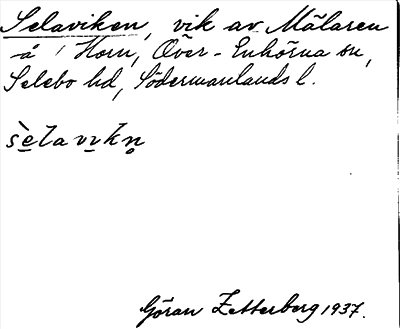 Selaviken, vik av Mälaren
å Horn, Över-Enhörna sn,
Selebo hd, Södermanlands l.
sè̠lavi̠kn̥
Göran Zetterberg 1937.